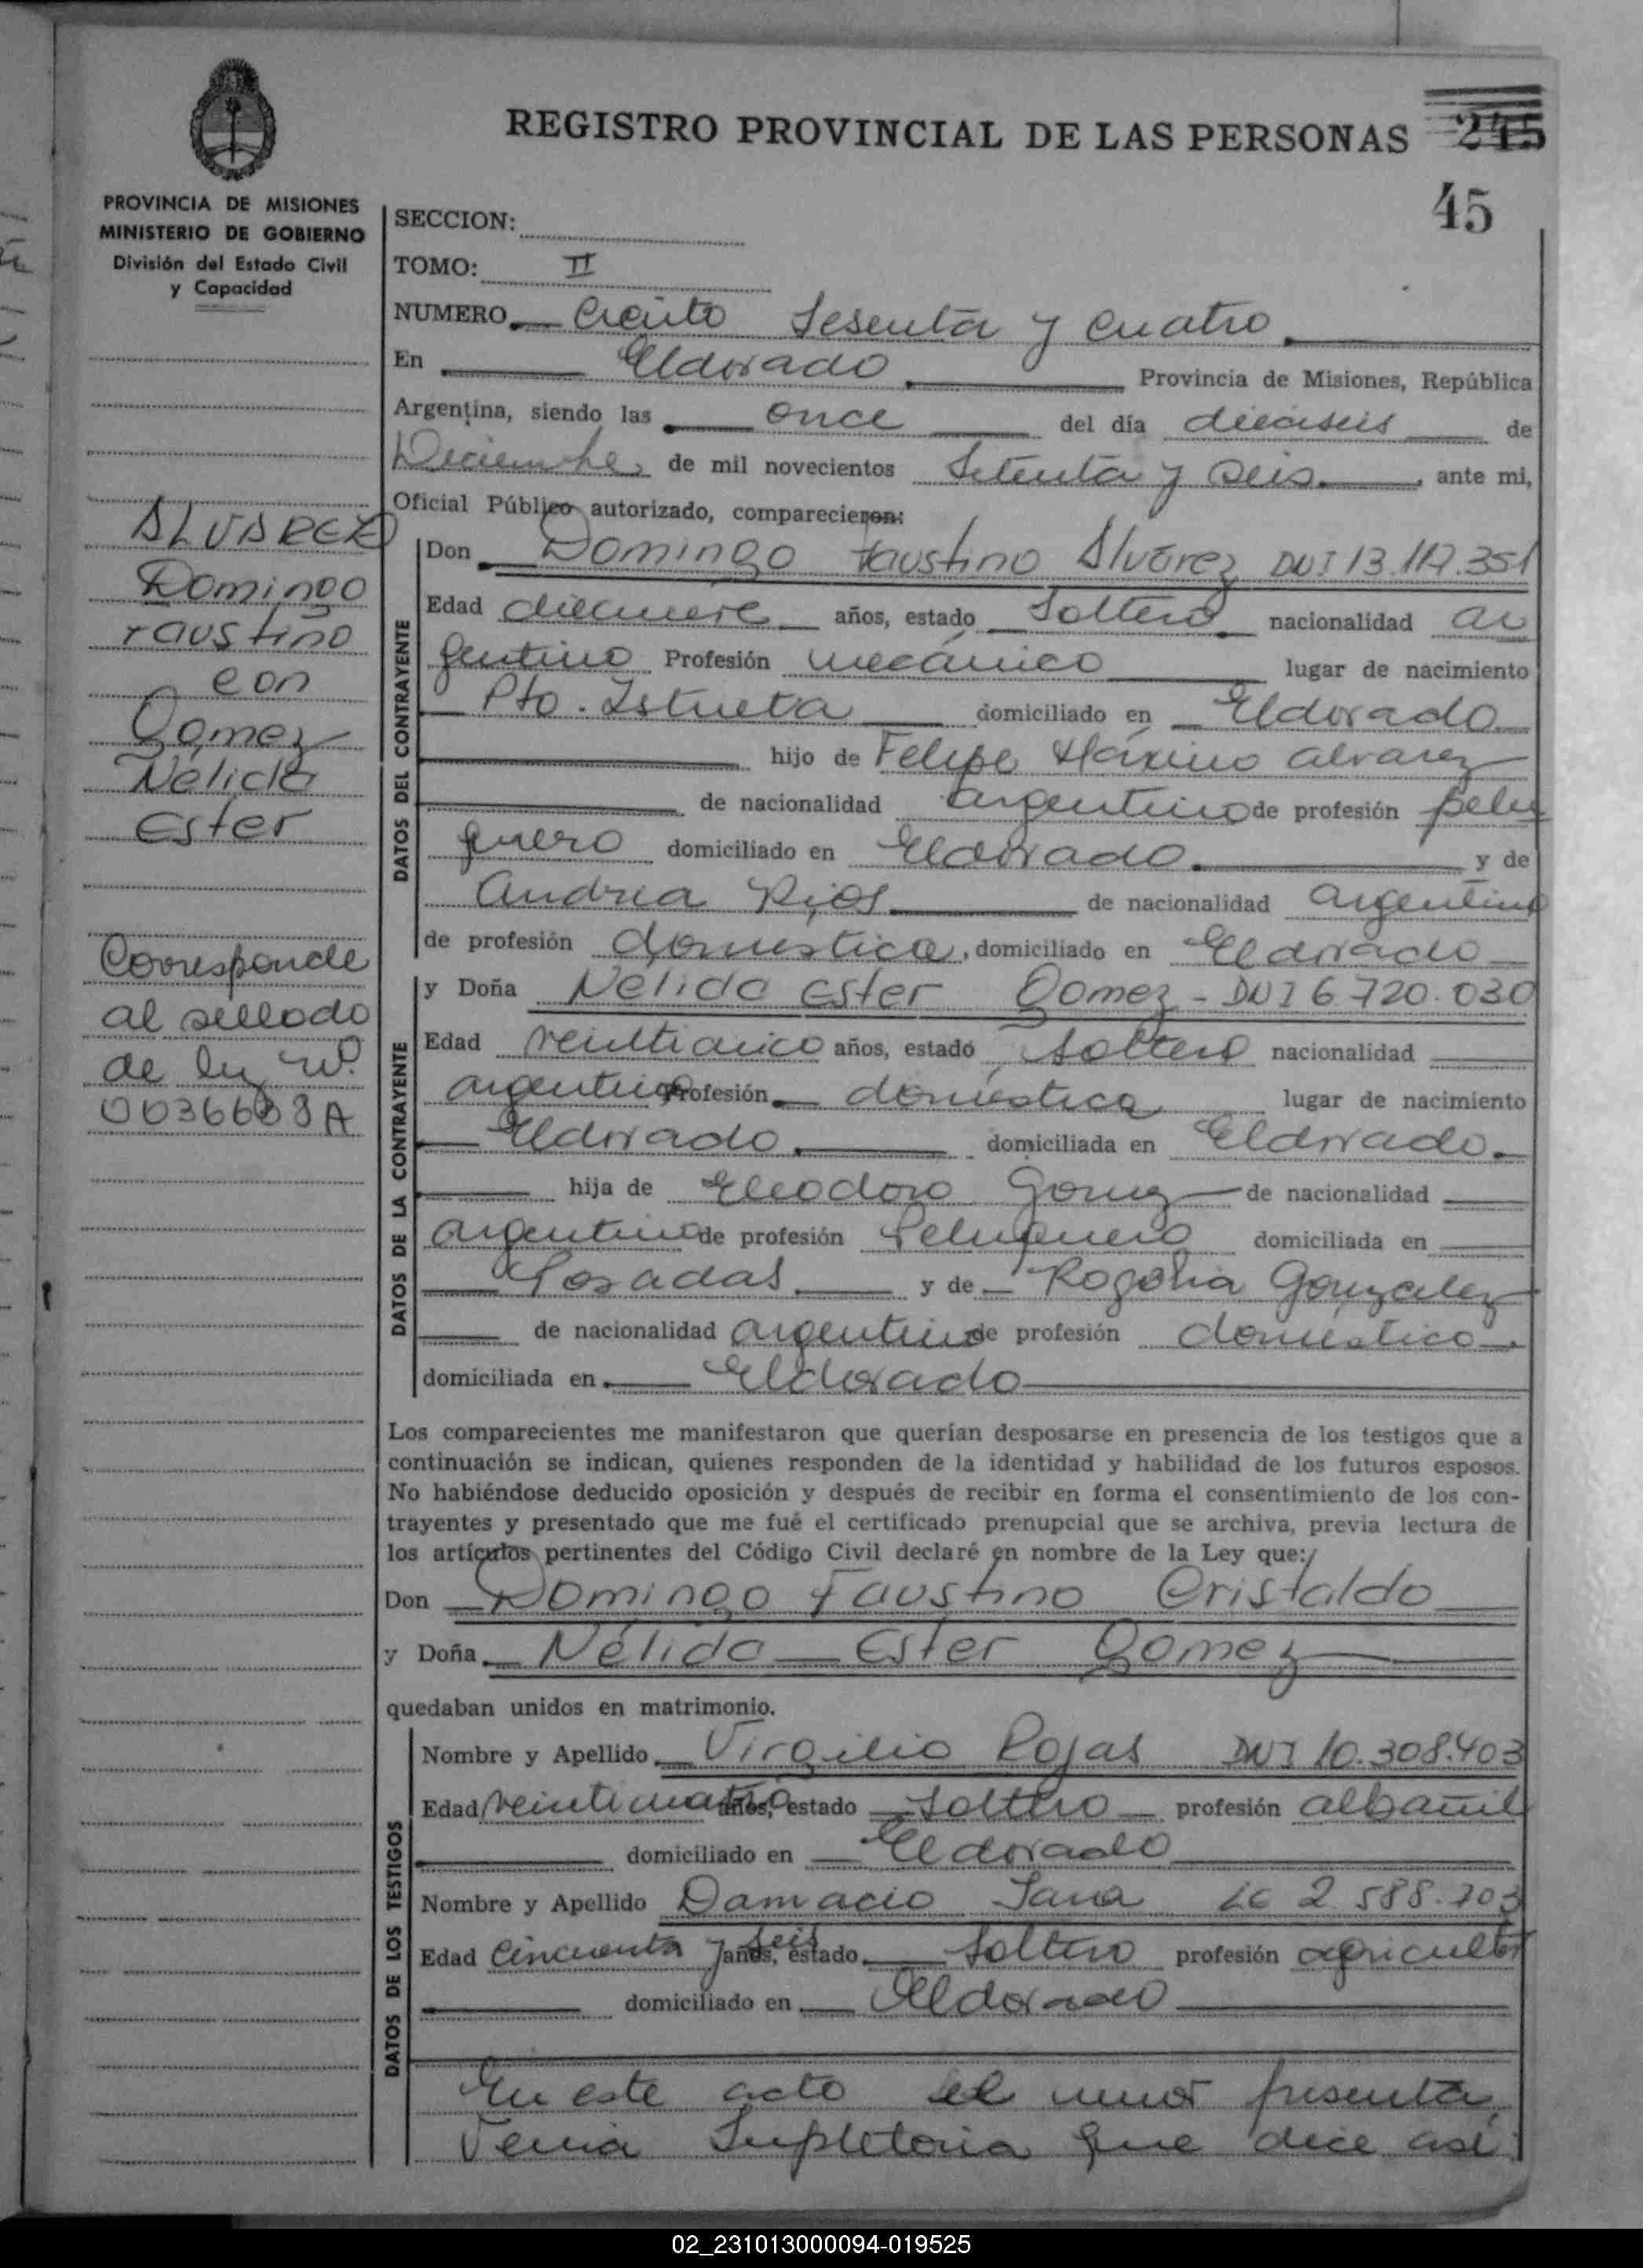 REGISTRO PROVINCIAL DE LAS PERSONAS 245
45
PROVINCIA DE MISIONES
MINISTERIO DE GOBIERNO
División del Estado Civil
y Capacidad
SECCION:
TOMO: II
NUMERO Ciento Sesenta y Cuatro
En Eldorado Provincia de Misiones, República
Argentina, siendo las once del día dieciseis de
Diciembre de mil novecientos Setenta y Seis ante mi,
Oficial Público autorizado, comparecieron:
ALVAREZ
Domingo
Faustino
con
Gomez
Nélida
Ester
Corresponde
al sellado
de ley Nº
Don Domingo Faustino Alvarez DNI 13.117.351
Edad diecinueve años, estado Soltero nacionalidad ar
gentino Profesión mecánico lugar de nacimiento
Pto. Istueta domiciliado en Eldorado
hijo de Felipe Máximo Alvarez
de nacionalidad argentino de profesión pelu
quero domiciliado en Eldorado y de
Andrea Rios de nacionalidad argentina
de profesión doméstica, domiciliado en Eldorado
y Doña Nélida Ester Gomez - DNI 6.720.030
Edad veinticinco años, estado Soltera nacionalidad
argentina Profesión doméstica lugar de nacimiento
Eldorado domiciliada en Eldorado
hija de Eleodoro Gomez de nacionalidad
argentino de profesión Peluquero domiciliada en
Posadas y de Rogelia Gonzalez
de nacionalidad argentina de profesión doméstica
domiciliada en Eldorado
DATOS DEL CONTRAYENTE
DATOS DE LA CONTRAYENTE
Los comparecientes me manifestaron que querían desposarse en presencia de los testigos que a
continuación se indican, quienes responden de la identidad y habilidad de los futuros esposos.
No habiéndose deducido oposición y después de recibir en forma el consentimiento de los con-
trayentes y presentado que me fué el certificado prenupcial que se archiva, previa lectura de
los artículos pertinentes del Código Civil declaré en nombre de la Ley que:
Don Domingo Faustino Cristaldo
y Doña Nélida Ester Gomez
quedaban unidos en matrimonio.
DATOS DE LOS TESTIGOS
Nombre y Apellido Virgilio Rojas DNI 10.308.403
Edad veinticuatro años, estado Soltero profesión albañil
domiciliado en Eldorado
Nombre y Apellido Damacio Sana LE 2.588.703
Edad Cincuenta y seis años, estado Soltero profesión agricultor
domiciliado en Eldorado
En este acto el menor presenta
Venia Supletoria que dice así
02_231013000094-019525